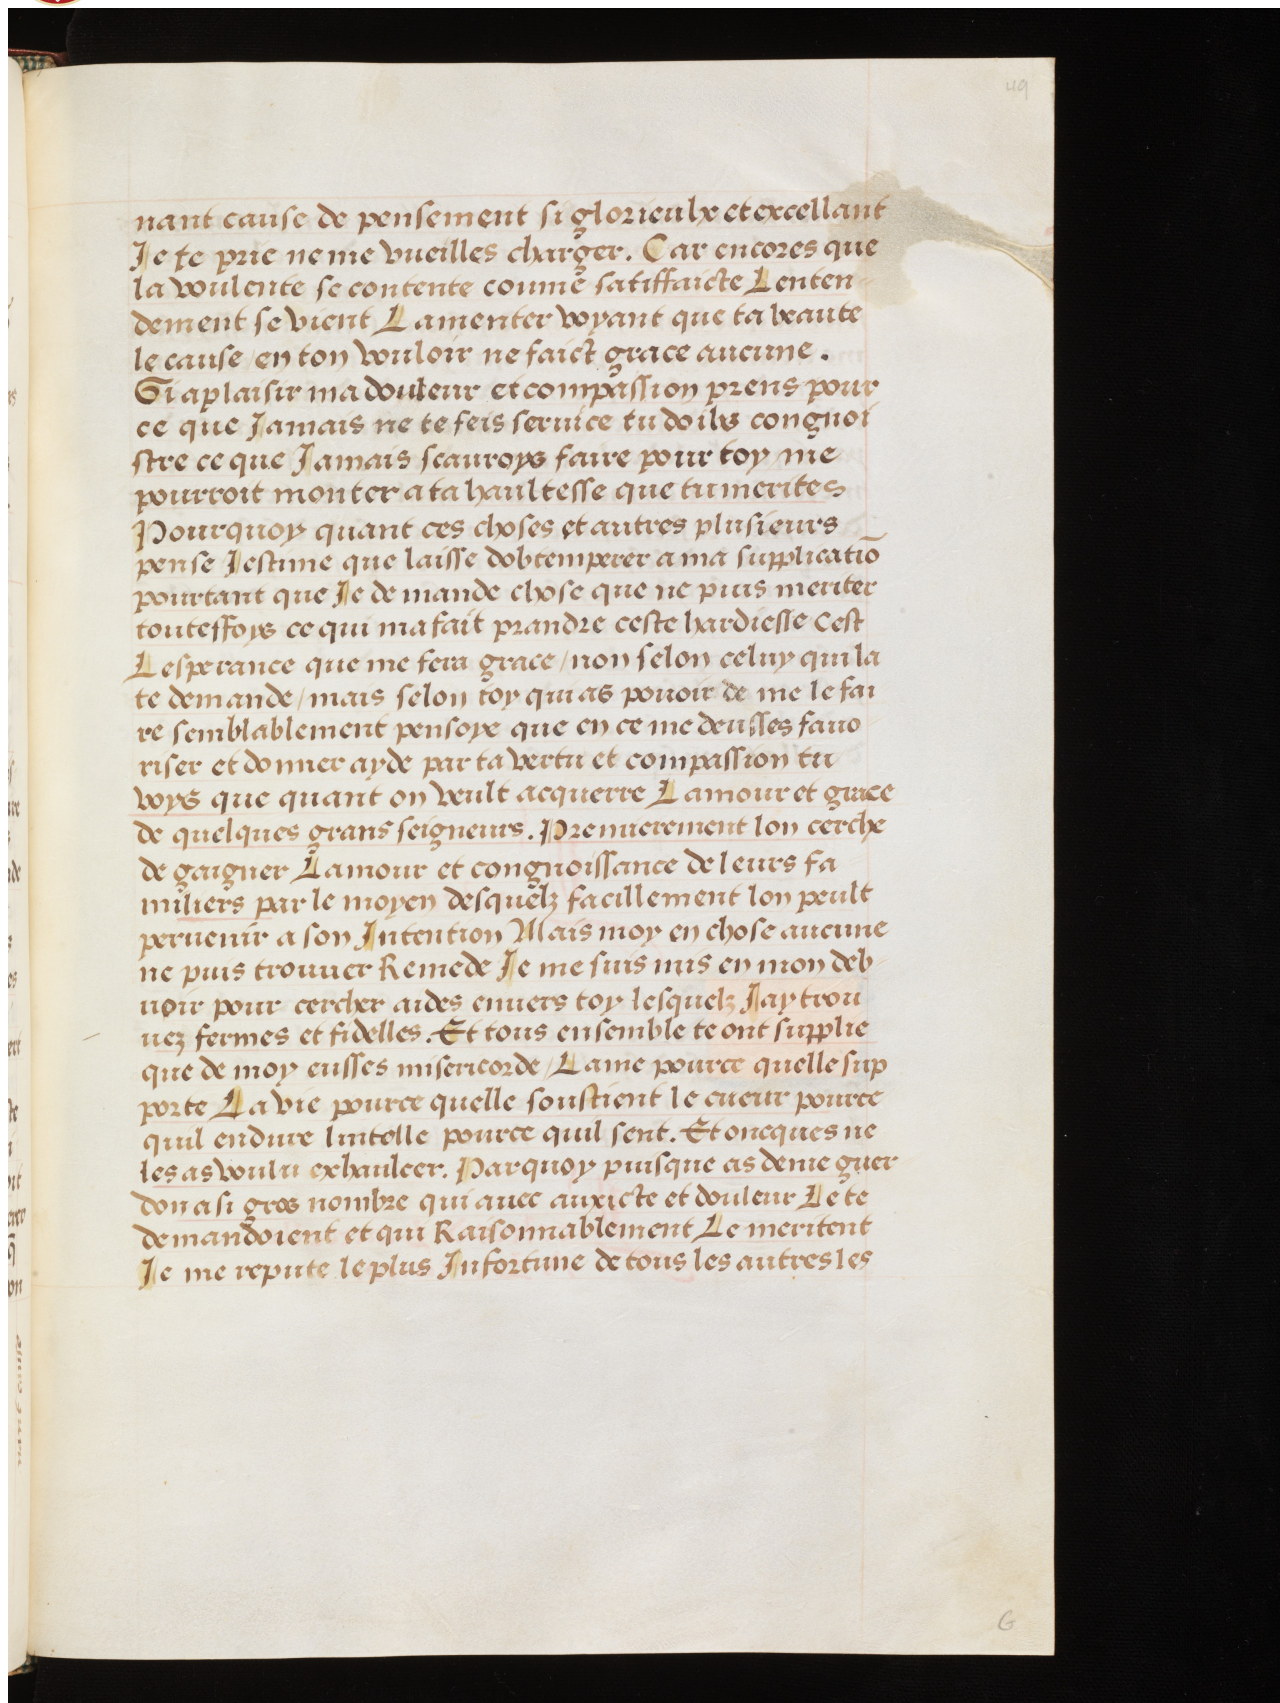 49
nant cause de pensement si glorieulx et excellant
Je te prie ne me vueilles charger. Car encores que
la voulente se contente coume satiffaicte Lenten-
dement se vient Lamenter voyant que ta beaute
le cause / en ton vouloir ne faict grace aucune.
Si a plaisir ma douleur et compassion prens pour
ce que Jamais ne te feis seruice tu doibs congnoi
stre ce que Jamais scauroys faire pour toy me
pourroit monter a ta haultesse que tu merites
Pourquoy quant ces choses et autres plusieurs
pense Jestime que laisse dobtemperer a ma supplicatiō
pourtant que Je demande chose que ne puis meriter
touteffoys ce qui ma fait prandre ceste hardiesse Cest
Lesperance que me fera grace / non selon celuy qui la
te demande / mais selon toy qui as pouoir de me le fai
re semblablement pensoye que en ce me deusses fauo
riser et donner ayde par ta vertu et compassion tu
voys que quant on veult acquerre Lamour et grace
de quelques grans seigneurs. Premierement lon cerche
de gaigner Lamour et congnoissance de leurs fa
miliers par le moyen desquelz facillement lon peult
peruenir a son Intention Mais moy en chose aucune
ne puis trouuer Remede Je me suis mis en mon deb-
uoir pour cercher aides enuers toy lesquelz Jay trou
uez fermes et fidelles. Et tous ensemble te ont supplie
que de moy eusses misericorde / Lame pource quelle sup
porte La vie pource quelle soustient le cueur pource
quil endure lintelle pource quil sent. Et oncques ne
les as voulu exhaulcer. Parquoy puisque as denie guer
don a si gros nombre qui auec auxicte et douleur Le te
demandoient et qui Raisonnablement Le meritent
Je me repute le plus Infortune de tous les autres les
G